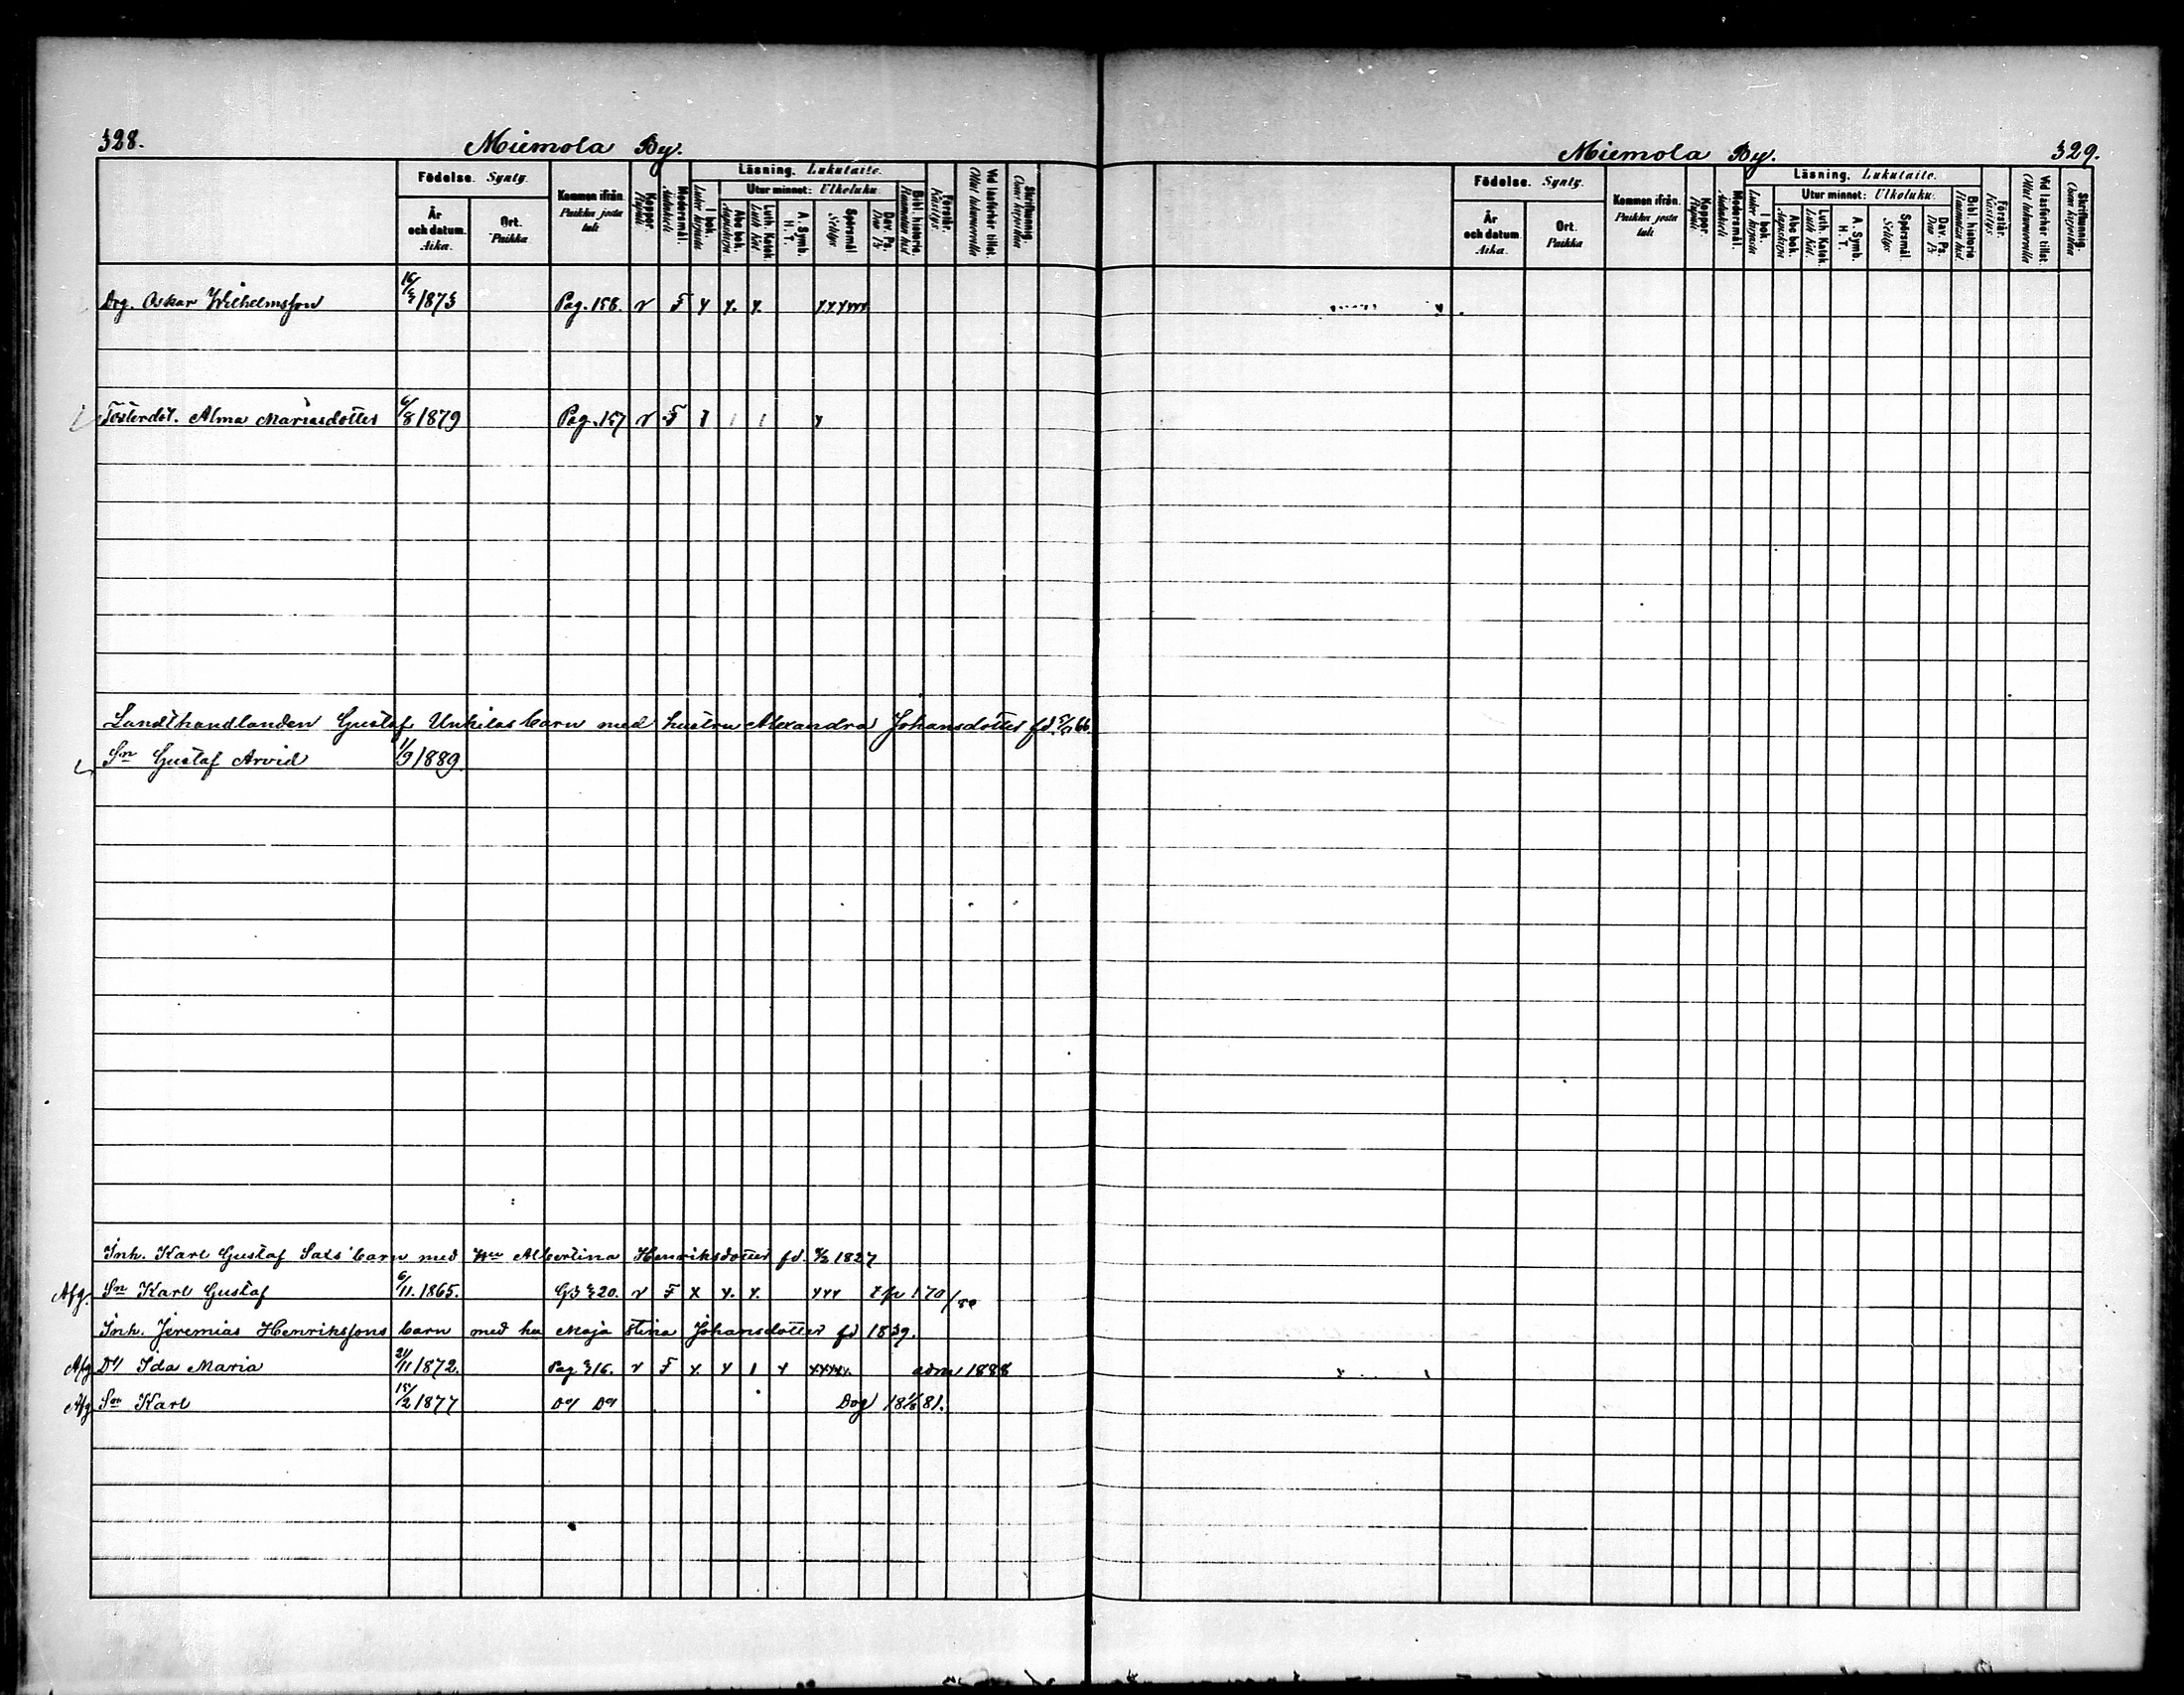 328.
Miemola By.
Födelse. Synty.
År och datum. Aika.
Ort. Paikka
Kommen ifrån. Paikka josta tuli
Koppor.
Modersmål.
Läsning. Lukutaito.
I bok.
Utur minnet: Ulkoluku.
Abc bok.
Luth. Katek.
A. Symb. H. T.
Spörsmål
Dav. Ps.
Bibl. historie
Förstår. Käsitys.
Vid läsförhör tillst.
Skriftkunnig.
Drg. Oskar Wilhelmsson 16/3 1873 Pag. 156. v F
Fosterdot. Alma Mariasdotter 6/8 1879 Pag. 157 v F
Landthandlanden Gustaf Unkilas barn med hustru Alexandra Johansdotter fd.
Sn Gustaf Arvid 1/9 1889
Inh. Karl Gustaf Sats barn med Albertina Henriksdotter fd. 1827
Afg. Sn Karl Gustaf 6/11 1865. 320. v F x
Inh. Jeremias Henrikssons barn med hu Maja Stina Johansdotter fd 1839.
Afg Dr Ida Maria 24/11 1872. Pag 316. v F adm 1888
Afg Sn Karl 15/2 1877 Do Do Dog 81.
Miemola By.
329.
Födelse. Synty.
År och datum. Aika.
Ort. Paikka
Kommen ifrån. Paikka josta tuli
Koppor.
Modersmål.
Läsning. Lukutaito.
I bok.
Utur minnet: Ulkoluku.
Abc bok.
Luth. Katek.
A. Symb. H. T.
Spörsmål
Dav. Ps.
Bibl. historie
Förstår. Käsitys.
Vid läsförhör tillst.
Skriftkunnig.